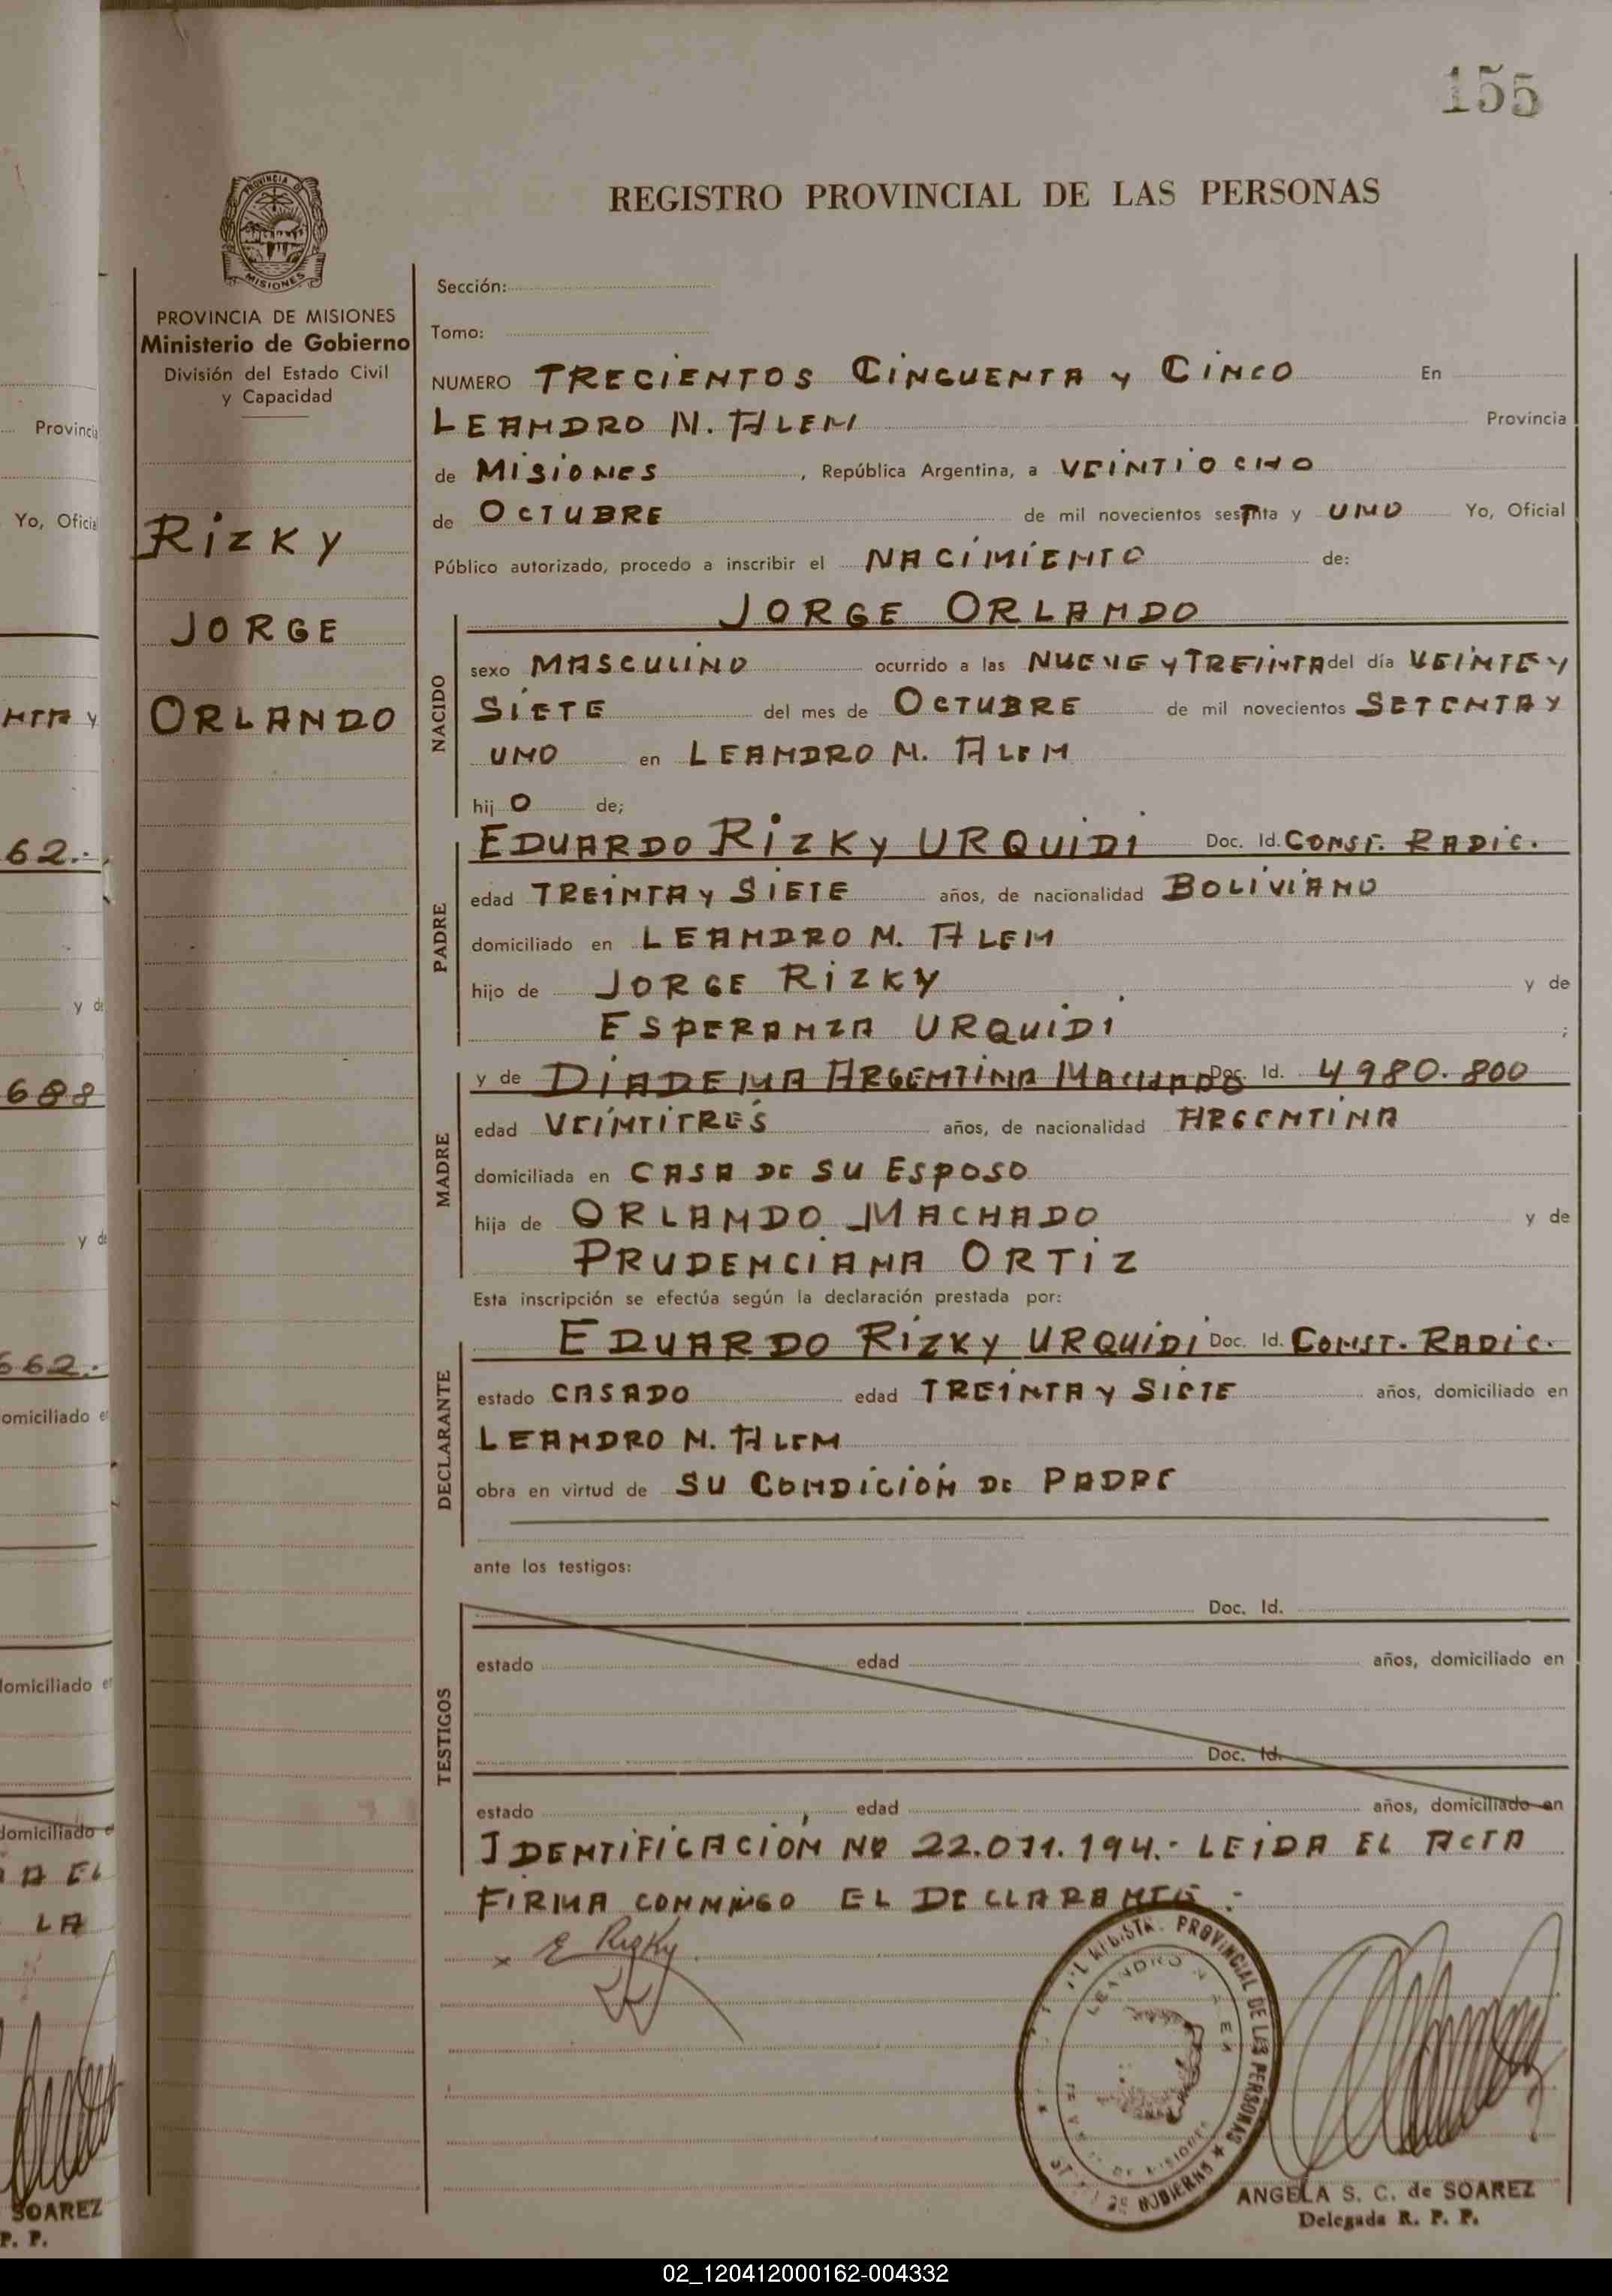 155
REGISTRO PROVINCIAL DE LAS PERSONAS
PROVINCIA DE
MISIONES
PROVINCIA DE MISIONES
Ministerio de Gobierno
División del Estado Civil
y Capacidad
Rizky
JORGE
ORLANDO
Sección:
Tomo:
NUMERO TRECIENTOS CINCUENTA y CINCO En
LEANDRO N. ALEM Provincia
de MISIONES, República Argentina, a VEINTIOCHO
de OCTUBRE de mil novecientos sesenta y UNO Yo, Oficial
Público autorizado, procedo a inscribir el NACIMIENTO de:
NACIDO
JORGE ORLANDO
sexo MASCULINO ocurrido a las NUEVE y TREINTA del día VEINTE y
SIETE del mes de OCTUBRE de mil novecientos SETENTA y
UNO en LEANDRO N. ALEM
hij O de;
PADRE
EDUARDO RIZKY URQUIDI Doc. Id. CONST. RADIC.
edad TREINTA y SIETE años, de nacionalidad BOLIVIANO
domiciliado en LEANDRO N. ALEM
hijo de JORGE RIZKY y de
ESPERANZA URQUIDI ;
MADRE
y de DIADEMA ARGENTINA MACHADO Doc. Id. 4980.800
edad VEINTITRÉS años, de nacionalidad ARGENTINA
domiciliada en CASA DE SU ESPOSO
hija de ORLANDO MACHADO y de
PRUDENCIANA ORTIZ
Esta inscripción se efectúa según la declaración prestada por:
DECLARANTE
EDUARDO RIZKY URQUIDI Doc. Id. CONST. RADIC.
estado CASADO edad TREINTA y SIETE años, domiciliado en
LEANDRO N. ALEM
obra en virtud de SU CONDICIÓN DE PADRE
ante los testigos:
TESTIGOS
Doc. Id.
estado edad años, domiciliado en
Doc. Id.
estado edad años, domiciliado en
IDENTIFICACIÓN Nº 22.071.194.- LEIDA EL ACTA
FIRMA CONMIGO EL DECLARANTE.-
x E Rizky
PROVINCIAL DE LAS PERSONAS
LEANDRO N. ALEM
ANGELA S. C. de SOAREZ
Delegada R. P. P.
Provincia
Yo, Oficial
NTA y
62.-
y de
688
y de
662.-
omiciliado en
domiciliado en
domiciliado e
A EL
LA
SOAREZ
P. P.
02_120412000162-004332